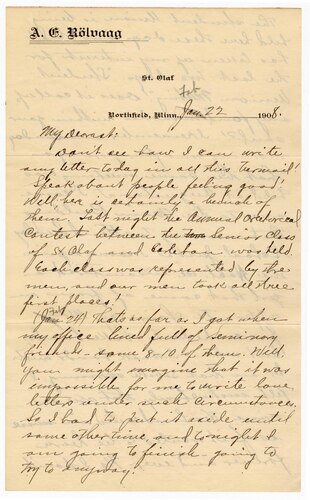 A. E. Rölvaag
St. Olaf
Northfield, Minn., Jan. 22 1908.
Feb
My Dearest:
Don't see how I can write
any letter today in all this turmoil!
Speak about people feeling good!
Well here is certainly a bunch of
them. Last night the Annual Oratorical
Contest between the Senior Class
of St Olaf and Carleton was held.
Each class was represented by three
men, and our men took all three
first places!
(Feb 24) That's as far as I got when
my office lined full of seminary
friends - some 8-10 of them. Well,
you might imagine that it was
impossible for me to write love
letters under such circumstances.
So I had to put it aside until
some other time, and tonight I
am going to finish - going to
try to anyway.